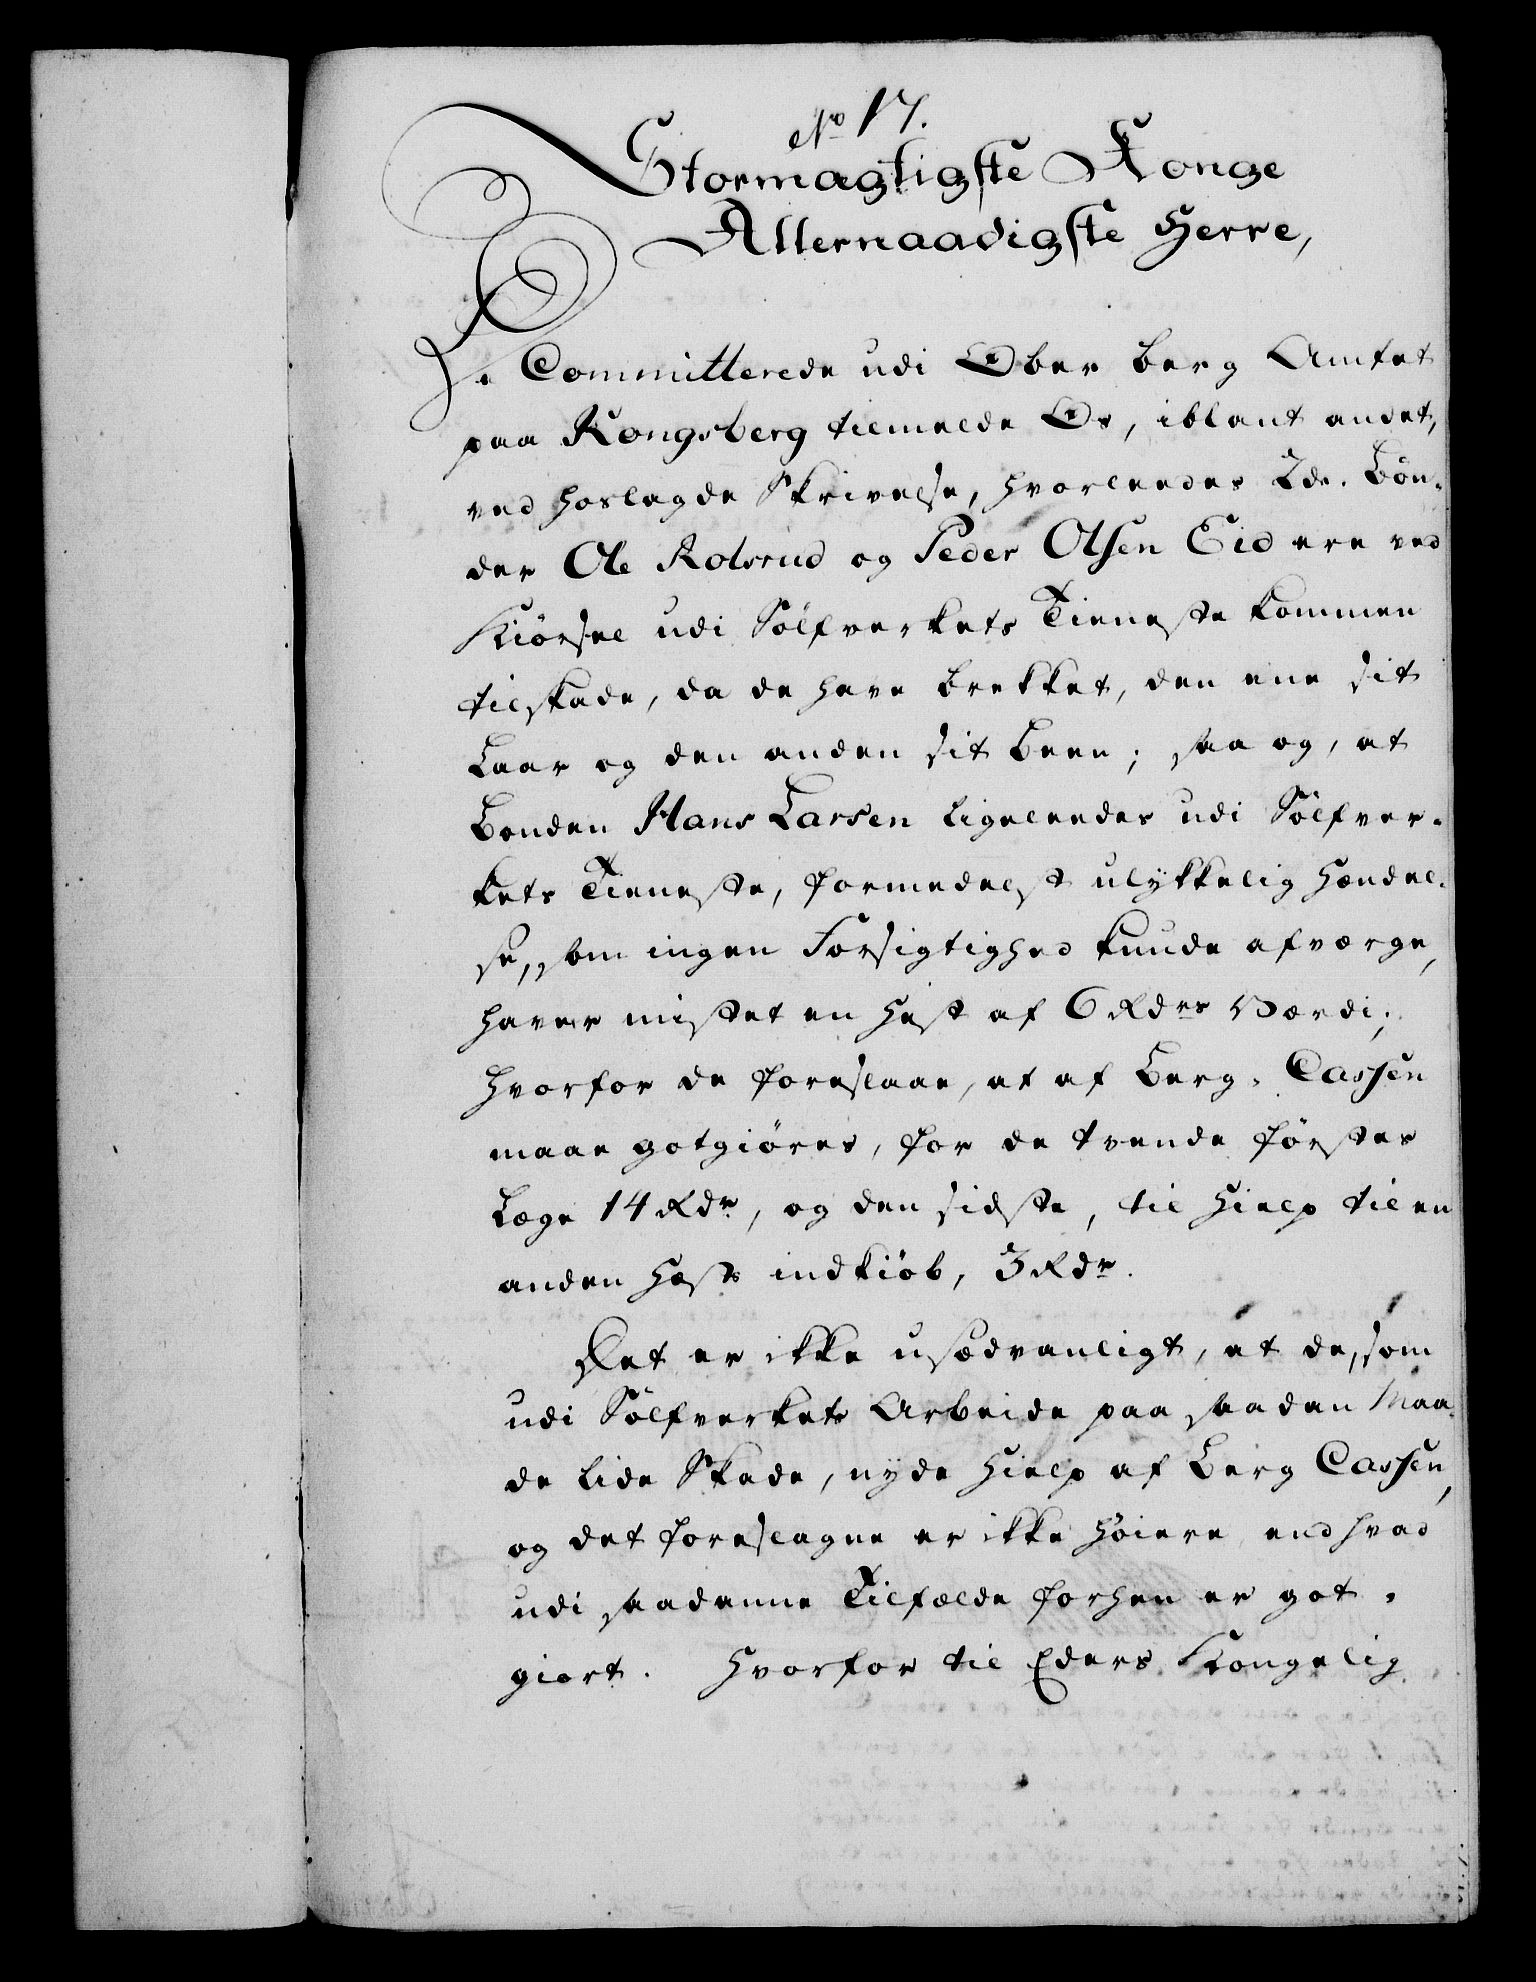 No 17.
Stormagtigste Konge
Allernaadigste Herre,
De Committerede udi Ober berg Amtet
paa Kongsberg tilmelde Os, iblant andet,
ved hoslagde Skrivelse, hvorleedes 2de. Bön-
der Ole Rolsrud og Peder Olsen Eid ere ved
Kiörsel udi Sölfverkets Tieneste kommen
tilskade, da de have brekket, den eene sit
Laar og den anden sit Been; saa og, at
Bonden Hans Larsen ligeleedes udi Sölfver-
kets Tieneste, formedelst ulykkelig Hændel-
se, som ingen Forsigtighed kunde afværge,
haver mistet en Hest af 6 Rdrs Værdi;
Hvorfor de foreslaae, at af Berg-Cassen
maae gotgiöres, for de tvende förstes
Læge 14 Rdr, og den sidste, til Hielp til en
anden Hests indkiöb, 3 Rdr.
Det er ikke usædvanligt, at de, som
udi Sölfverkets Arbeide paa saadan Maa-
de lide Skade, nyde Hielp af Berg Cassen,
og det foreslagne er ikke höiere end hvad
udi saadanne Tilfælde forhen er got-
giort. Hvorfor til Eders Kongelig